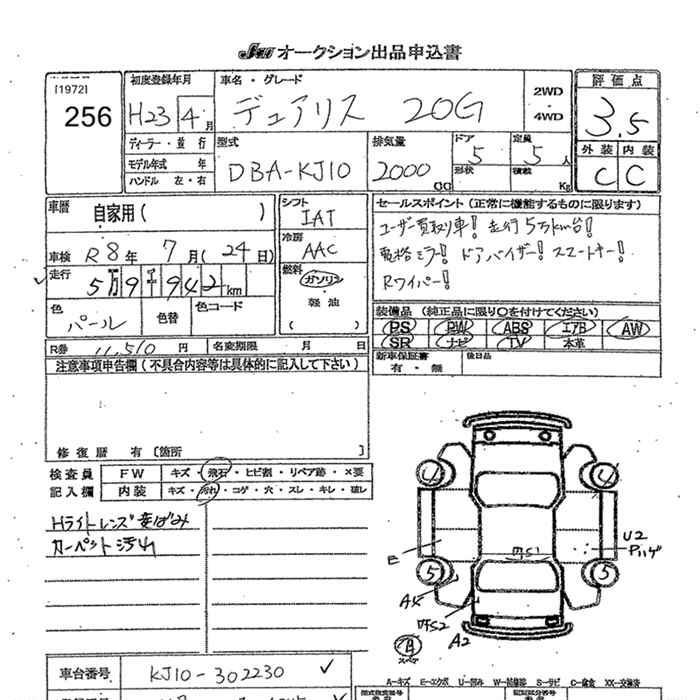 JU オークション出品申込書
[1972]
256
初度登録年月
H23 4 月
車名・グレード
デュアリス 20G
2WD
・
4WD
評価点
3.5
ディーラー・並行
モデル年式 年
ハンドル 左・右
型式
DBA-KJ10
排気量
2000 CC
ドア
5
形状
定員
5 人
積載
Kg
外装 内装
C C
車歴 自家用( )
車検 R8年 7月(24日)
走行 5万9千942km
色 パール 色替 色コード
シフト
IAT
冷房
AAC
燃料
ガソリン
・
軽油
( )
セールスポイント(正常に機能するものに限ります)
ユーザー買取り車! 走行5万km台!
電格ミラー! ドアバイザー! スマートキー!
Rワイパー!
装備品(純正品に限り○を付けてください)
PS PW ABS エアB AW
SR ナビ TV 本革
新車保証書
有・無
後日品
R券 11,510 円 名変期限 月 日
注意事項申告欄(不具合内容等は具体的に記入して下さい)
修復歴 有〔箇所 〕
検査員 FW キズ・飛石・ヒビ割・リペア跡・×要
記入欄 内装 キズ・汚れ・コゲ・穴・スレ・キレ・破レ
Hライトレンズ黄ばみ
カーペット汚れ
4 4
E
U2
Pハゲ
5 5
A2
スペア
A-キズ E-エクボ U-凹み W-補修跡 S-サビ C-腐食 XX-交換済
車台番号 KJ10-302230 ✓